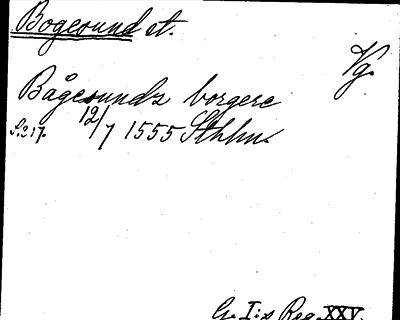 Bogesund et.
Vg.
Bågesundz borgere
S. 217. 12/7 1555 Sthlm.
G. I:s Reg. XXV.